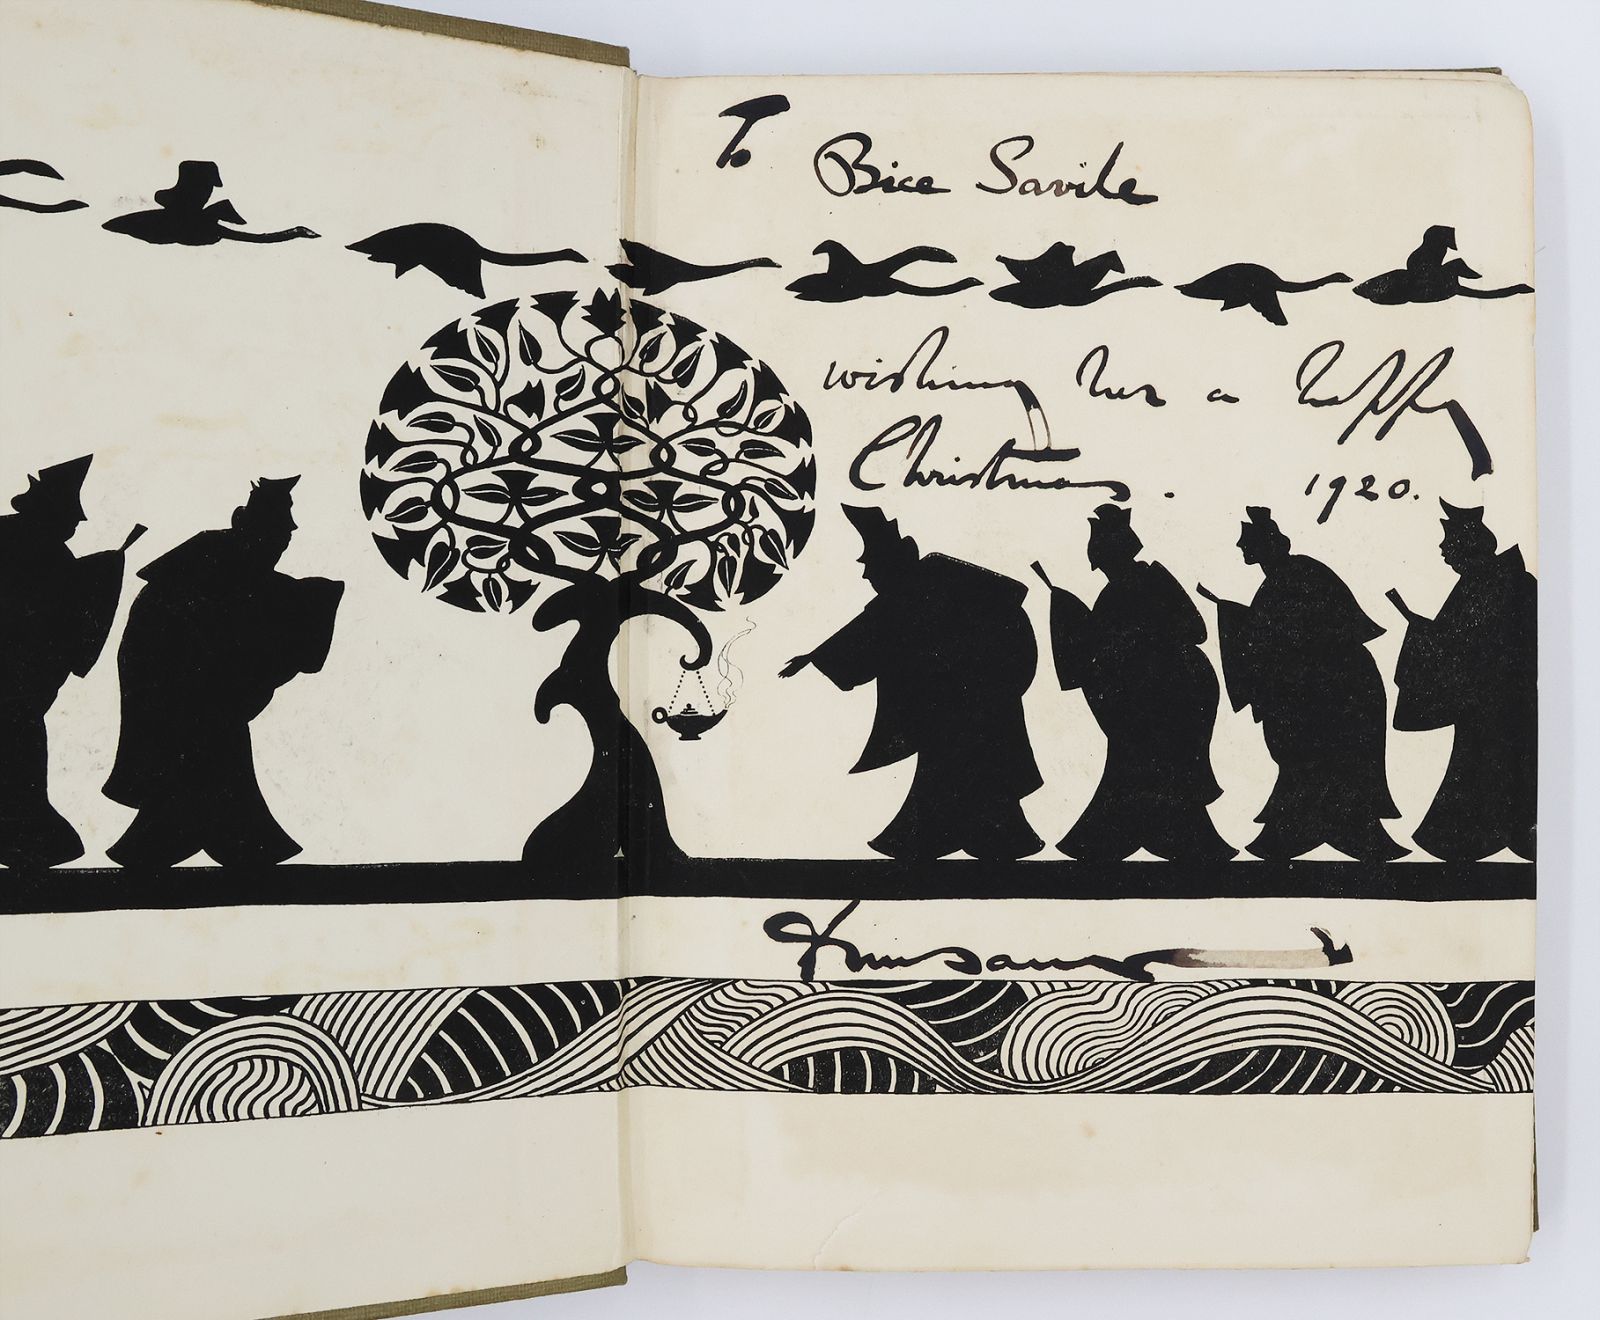 To Bice Savile
wishing her a happy
Christmas. 1920.